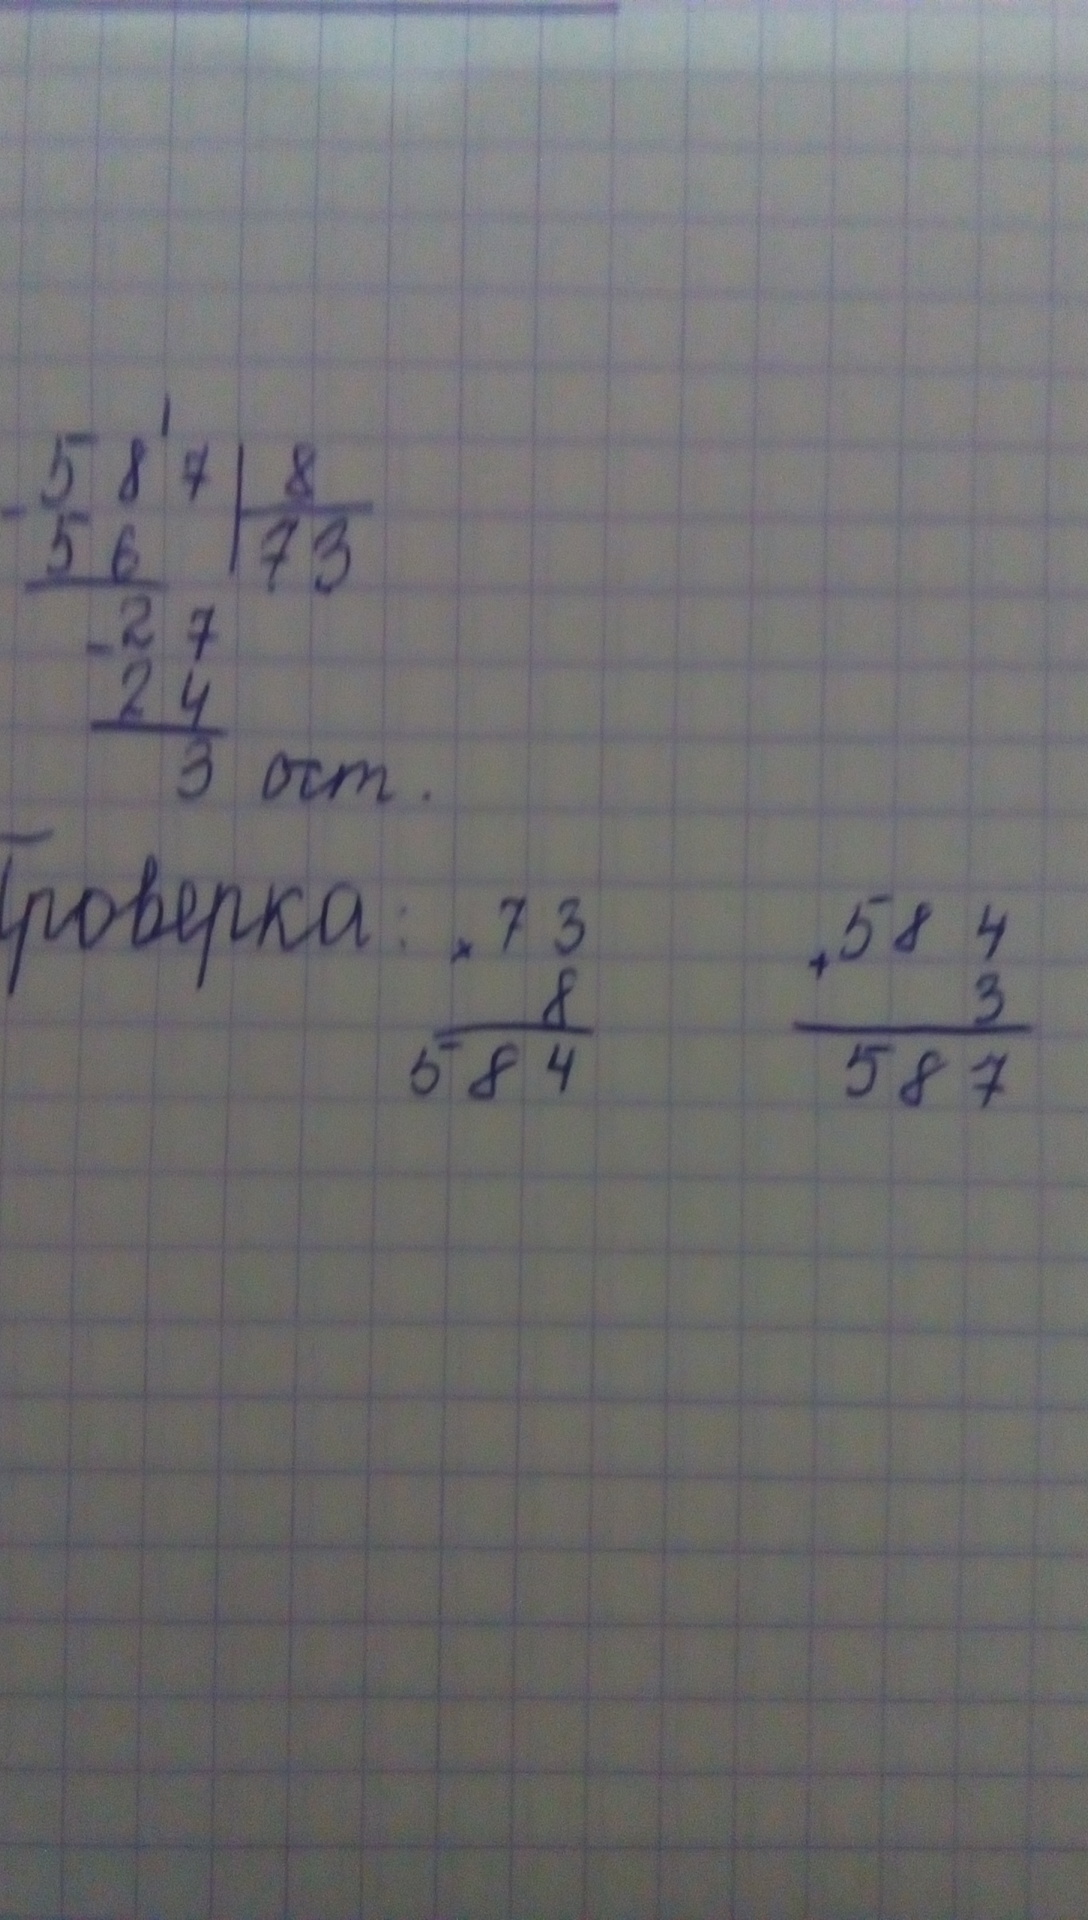 - 5 8 7 | 8
5 6 | 73
- 2 7
2 4
3 ост.
Проверка: × 7 3
8
5 8 4
+ 5 8 4
3
5 8 7